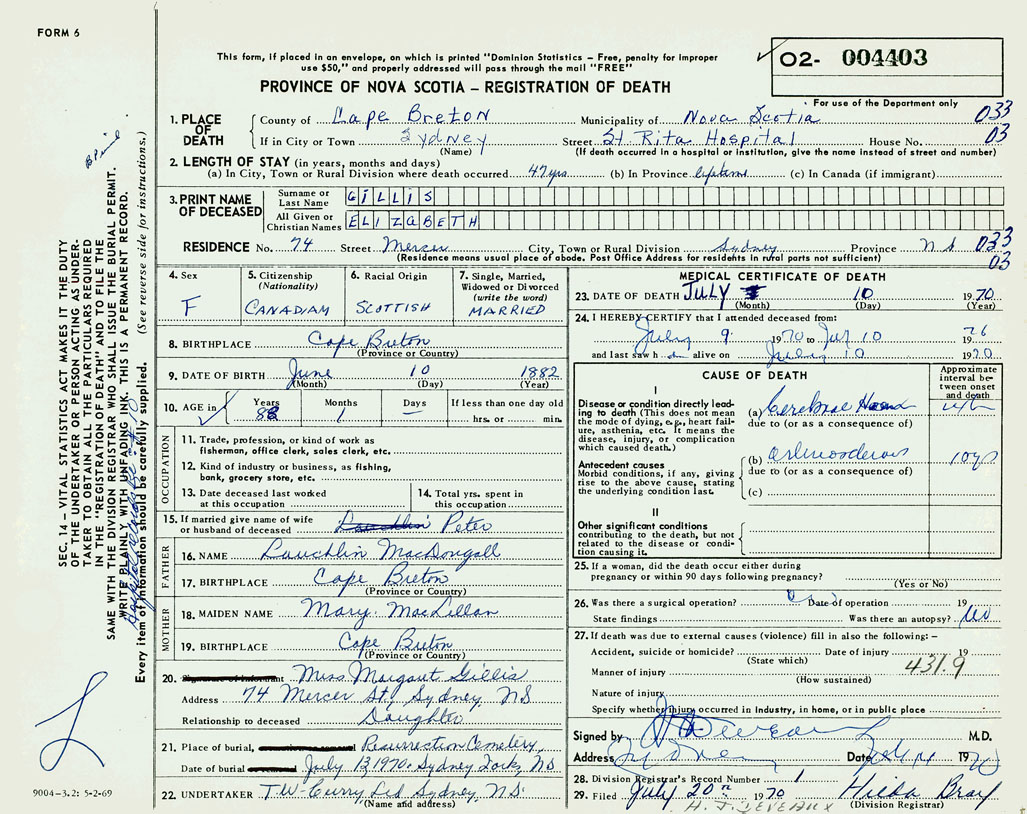 FORM 6
This form, if placed in an envelope, on which is printed "Dominion Statistics – Free, penalty for improper
use $50," and properly addressed will pass through the mail "FREE"
O2- 004403
PROVINCE OF NOVA SCOTIA – REGISTRATION OF DEATH
For use of the Department only
1. PLACE OF DEATH
County of Cape Breton Municipality of Nova Scotia 033
If in City or Town Sydney Street St Rita Hospital House No. 03
(Name) (If death occurred in a hospital or institution, give the name instead of street and number)
2. LENGTH OF STAY (in years, months and days)
(a) In City, Town or Rural Division where death occurred 47 yrs (b) In Province lifetime (c) In Canada (if immigrant)
3. PRINT NAME OF DECEASED
Surname or Last Name GILLIS
All Given or Christian Names ELIZABETH
RESIDENCE No. 74 Street Mercer City, Town or Rural Division Sydney Province N S 033
(Residence means usual place of abode. Post Office Address for residents in rural parts not sufficient) 03
4. Sex
F
5. Citizenship
(Nationality)
CANADIAM
6. Racial Origin
SCOTTISH
7. Single, Married,
Widowed or Divorced
(write the word)
MARRIED
8. BIRTHPLACE Cape Breton
(Province or Country)
9. DATE OF BIRTH June 10 1882
(Month) (Day) (Year)
10. AGE in
Years 88
Months 1
Days —
If less than one day old
hrs. or min.
OCCUPATION
11. Trade, profession, or kind of work as
fisherman, office clerk, sales clerk, etc.
12. Kind of industry or business, as fishing,
bank, grocery store, etc.
13. Date deceased last worked
at this occupation
14. Total yrs. spent in
this occupation
15. If married give name of wife
or husband of deceased Lauchlin Peter
FATHER
16. NAME Lauchlin MacDougall
17. BIRTHPLACE Cape Breton
(Province or Country)
MOTHER
18. MAIDEN NAME Mary MacLellan
19. BIRTHPLACE Cape Breton
(Province or Country)
20. Signature of Informant Miss Margaret Gillis
Address 74 Mercer St., Sydney, NS
Relationship to deceased Daughter
21. Place of burial, Resurrection Cemetery,
Date of burial July 13 1970 Sydney Forks, NS
22. UNDERTAKER T.W. Curry Ltd Sydney, NS.
(Name and address)
MEDICAL CERTIFICATE OF DEATH
23. DATE OF DEATH JULY 10 1970
(Month) (Day) (Year)
24. I HEREBY CERTIFY that I attended deceased from:
July 9 1970 to July 10 19
and last saw h alive on July 10 1970
CAUSE OF DEATH
Approximate
interval be-
tween onset
and death
I
Disease or condition directly lead-
ing to death (This does not mean
the mode of dying, e.g., heart fail-
ure, asthenia, etc. It means the
disease, injury, or complication
which caused death.)
(a) Cerebral
due to (or as a consequence of)
Antecedent causes
Morbid conditions, if any, giving
rise to the above cause, stating
the underlying condition last.
(b)
due to (or as a consequence of)
(c)
II
Other significant conditions
contributing to the death, but not
related to the disease or condi-
tion causing it.
25. If a woman, did the death occur either during
pregnancy or within 90 days following pregnancy?
(Yes or No)
26. Was there a surgical operation? Date of operation 19
State findings Was there an autopsy? no
27. If death was due to external causes (violence) fill in also the following: –
Accident, suicide or homicide? Date of injury 19
(State which)
Manner of injury 431.9
(How sustained)
Nature of injury
Specify whether injury occurred in industry, in home, or in public place
Signed by M.D.
Address Sydney Date 1970
28. Division Registrar's Record Number 1
29. Filed July 20th 1970 Hilda Bray
H. J. DEVEAUX (Division Registrar)
SEC. 14 – VITAL STATISTICS ACT MAKES IT THE DUTY
OF THE UNDERTAKER OR PERSON ACTING AS UNDER-
TAKER TO OBTAIN ALL THE PARTICULARS REQUIRED
IN THE "REGISTRATION OF DEATH" AND TO FILE THE
SAME WITH THE DIVISION REGISTRAR WHO SHALL ISSUE THE BURIAL PERMIT.
WRITE PLAINLY WITH UNFADING INK. THIS IS A PERMANENT RECORD.
Every item of information should be carefully supplied. (See reverse side for instructions.)
9004-3.2: 5-2-69